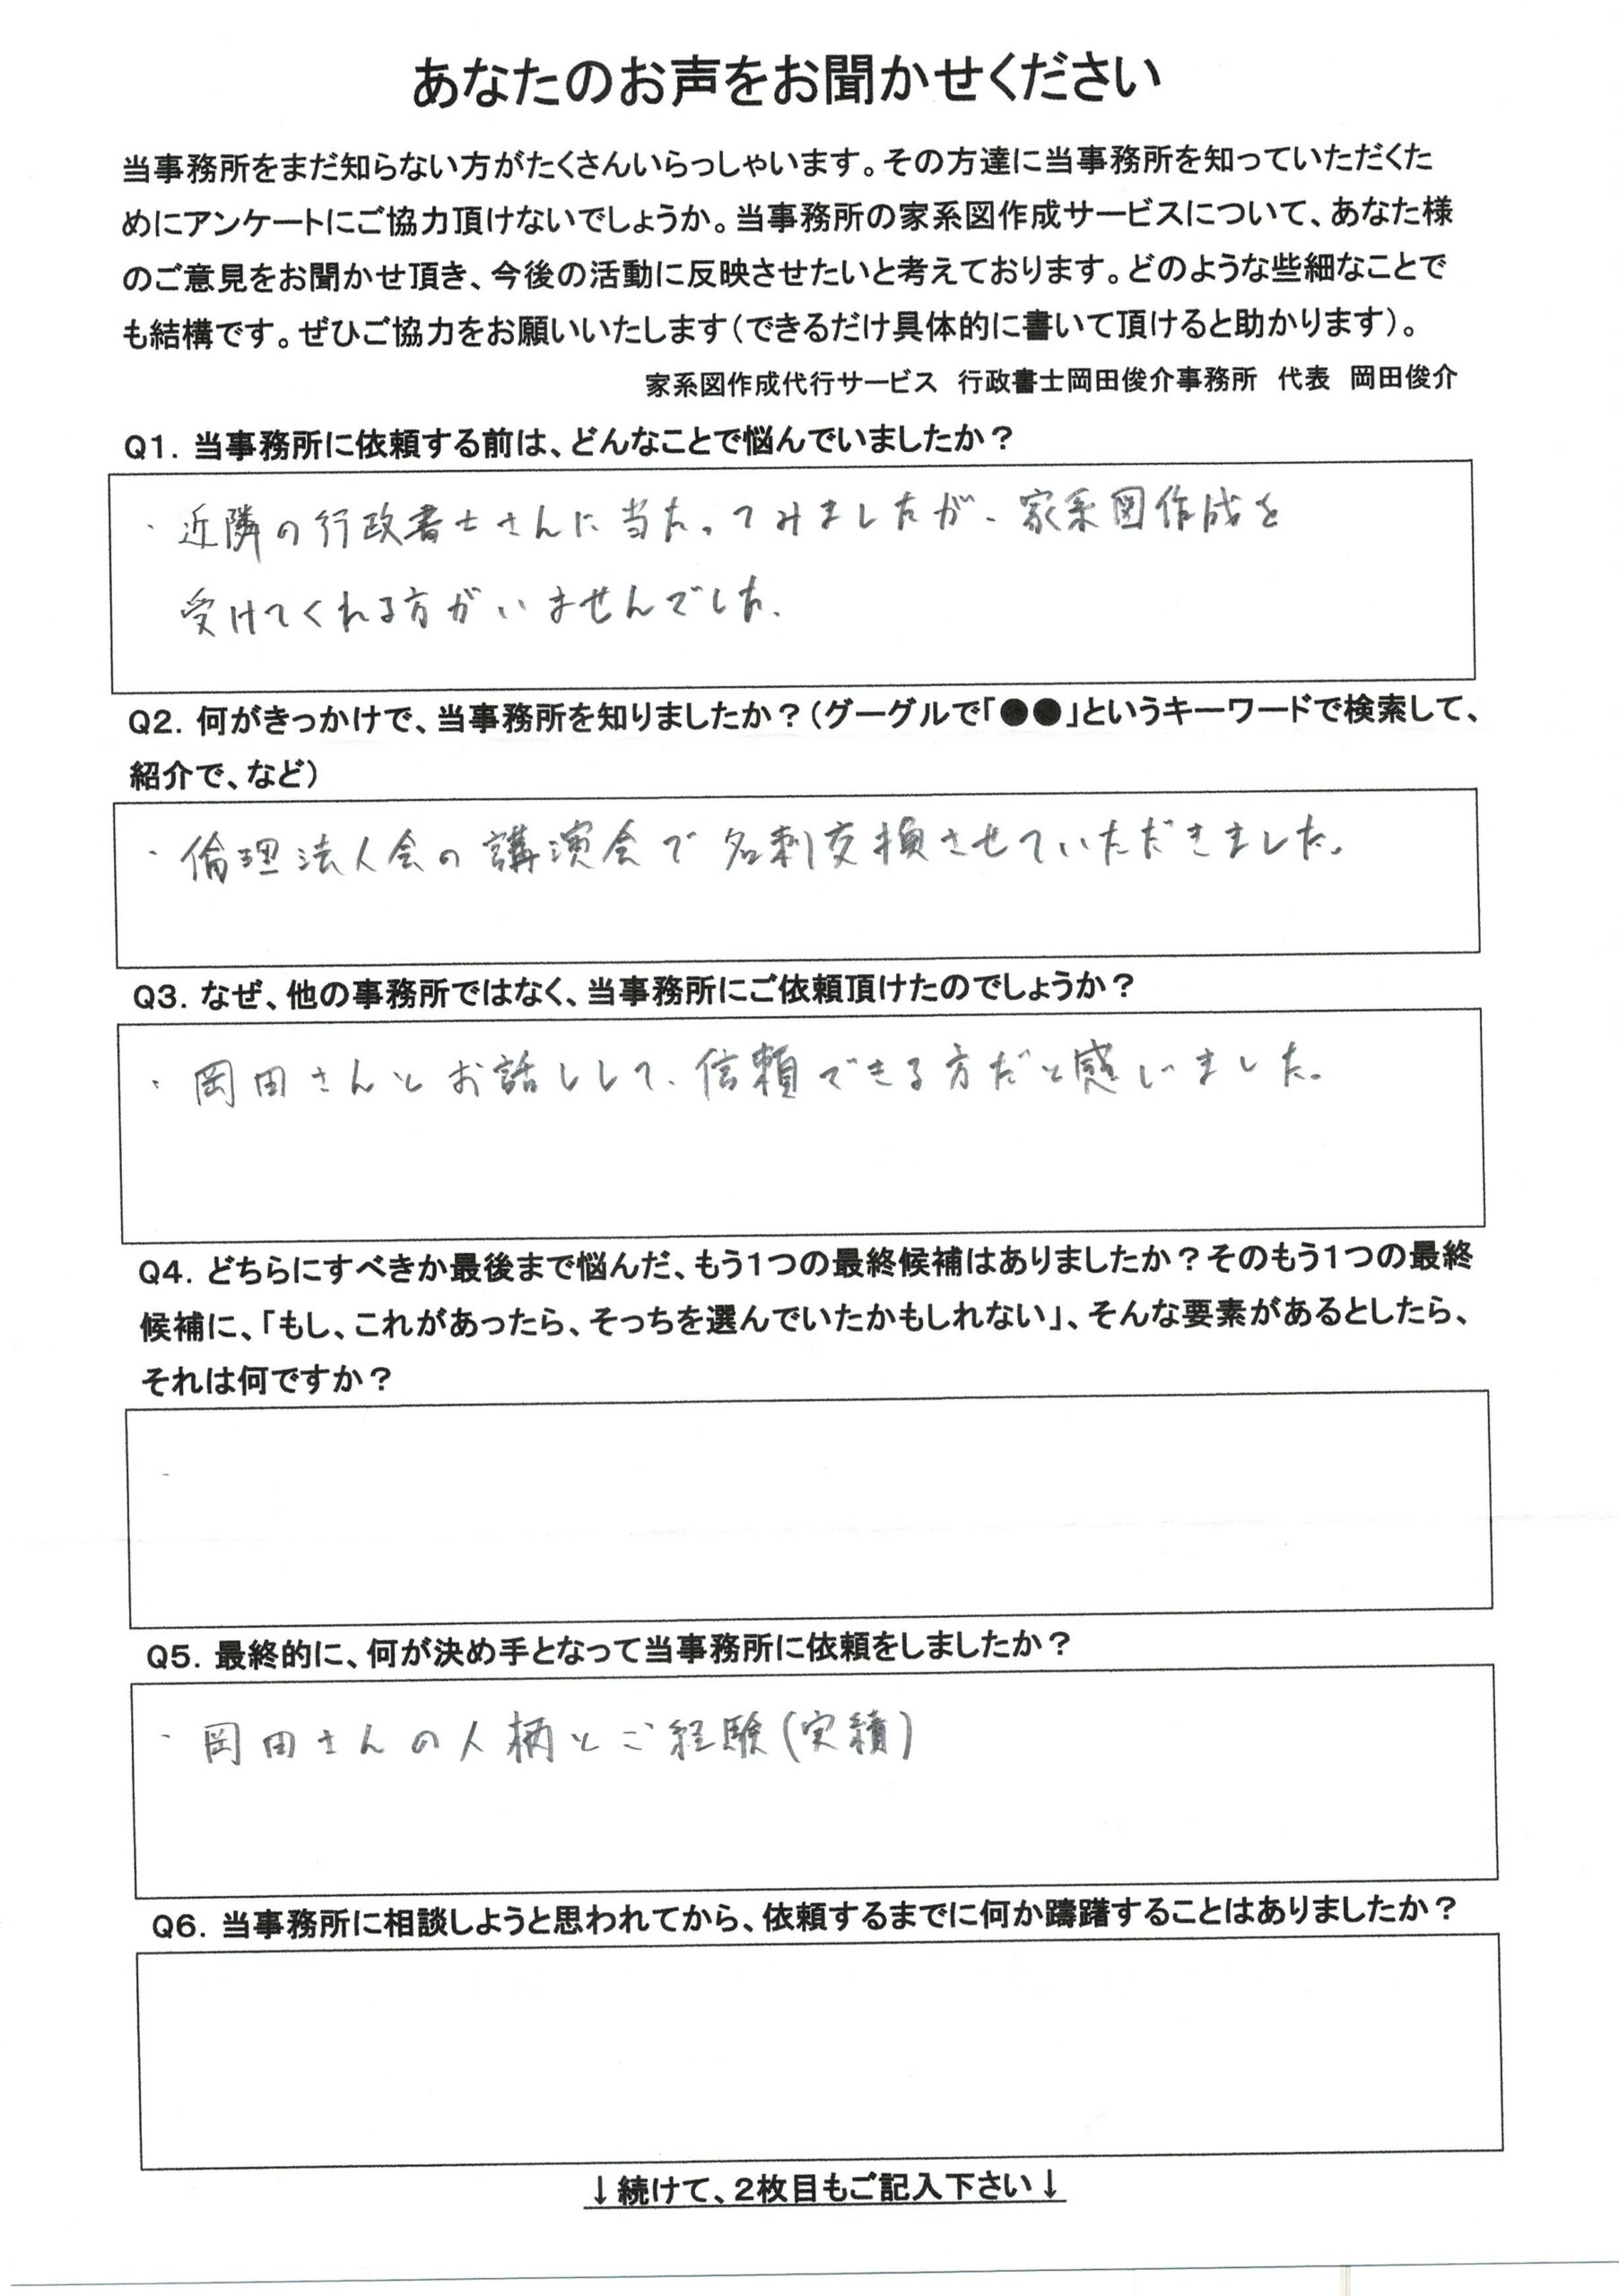 あなたのお声をお聞かせください
当事務所をまだ知らない方がたくさんいらっしゃいます。その方達に当事務所を知っていただくた
めにアンケートにご協力頂けないでしょうか。当事務所の家系図作成サービスについて、あなた様
のご意見をお聞かせ頂き、今後の活動に反映させたいと考えております。どのような些細なことで
も結構です。ぜひご協力をお願いいたします（できるだけ具体的に書いて頂けると助かります）。
家系図作成代行サービス　行政書士岡田俊介事務所　代表　岡田俊介
Q1. 当事務所に依頼する前は、どんなことで悩んでいましたか？
・近隣の行政書士さんに当たってみましたが、家系図作成を
受けてくれる方がいませんでした。
Q2. 何がきっかけで、当事務所を知りましたか？（グーグルで「●●」というキーワードで検索して、
紹介で、など）
・倫理法人会の講演会で名刺交換させていただきました。
Q3. なぜ、他の事務所ではなく、当事務所にご依頼頂けたのでしょうか？
・岡田さんとお話しして、信頼できる方だと感じました。
Q4. どちらにすべきか最後まで悩んだ、もう１つの最終候補はありましたか？そのもう１つの最終
候補に、「もし、これがあったら、そっちを選んでいたかもしれない」、そんな要素があるとしたら、
それは何ですか？
Q5. 最終的に、何が決め手となって当事務所に依頼をしましたか？
・岡田さんの人柄とご経験（実績）
Q6. 当事務所に相談しようと思われてから、依頼するまでに何か躊躇することはありましたか？
↓続けて、２枚目もご記入下さい↓